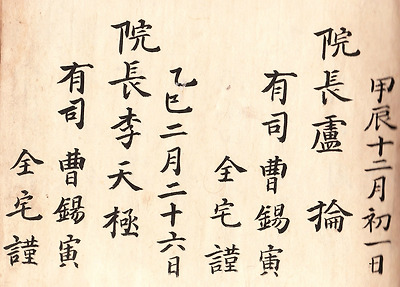 甲辰十二月初一日
院長盧 掄
有司曺錫寅
全宅謹
乙巳二月二十六日
院長李天極
有司曺錫寅
全宅謹